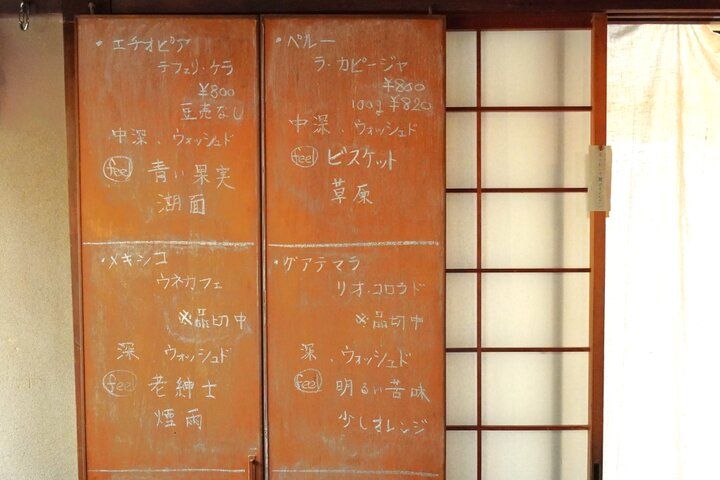 ・エチオピア
テフェリ・ケラ
¥800
豆売なし
中深、ウォッシュド
feel 青い果実
湖面
・メキシコ
ウネカフェ
※品切中
深、ウォッシュド
feel 老紳士
煙雨
・ペルー
ラ・カピージャ
¥800
100g ¥820
中深、ウォッシュド
feel ビスケット
草原
・グアテマラ
リオ・コロラド
※品切中
深、ウォッシュド
feel 明るい苦味
少しオレンジ